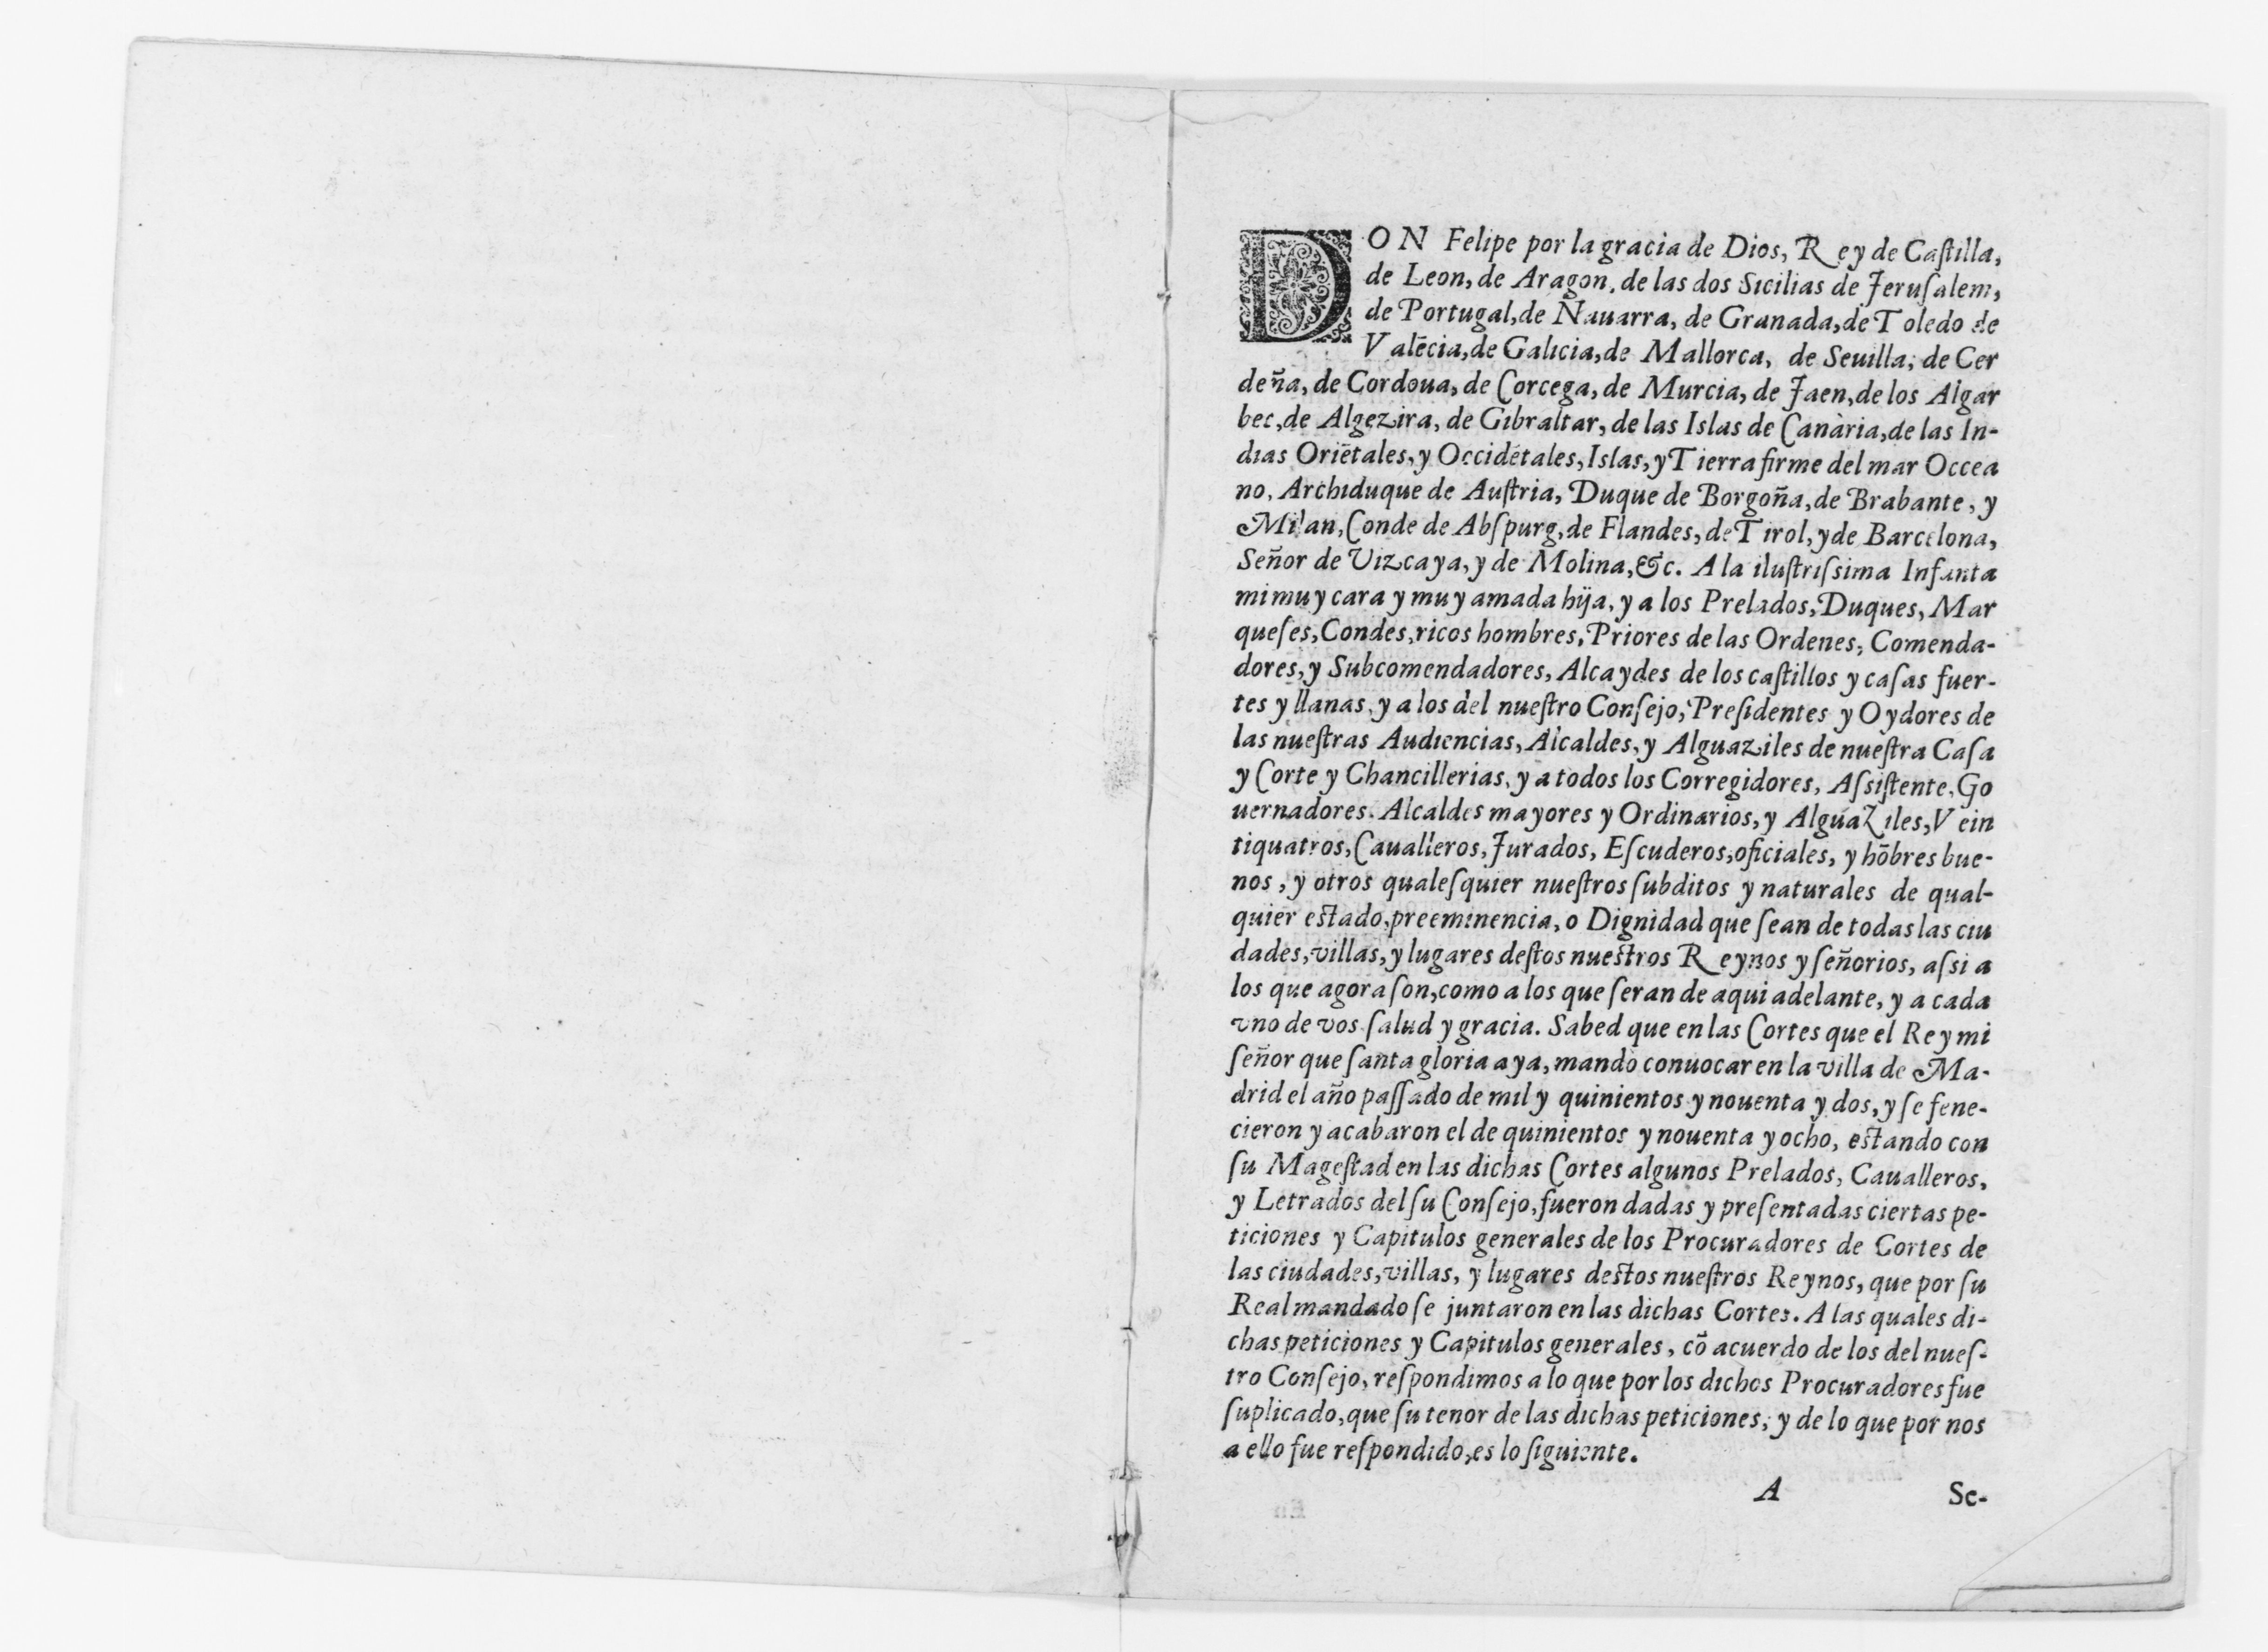 DON Felipe por la gracia de Dios, Rey de Caſtilla,
de Leon, de Aragon, de las dos Sicilias de Jeruſalem,
de Portugal, de Nauarra, de Granada, de Toledo de
Valēcia, de Galicia, de Mallorca, de Seuilla, de Cer
deña, de Cordoua, de Corcega, de Murcia, de Jaen, de los Algar
bec, de Algezira, de Gibraltar, de las Islas de Canària, de las In-
dias Oriētales, y Occidētales, Islas, y Tierra firme del mar Occea
no, Archiduque de Auſtria, Duque de Borgoña, de Brabante, y
Milan, Conde de Abſpurg, de Flandes, de Tirol, y de Barcelona,
Señor de Vizcaya, y de Molina, &c. A la iluſtriſsima Infanta
mi muy cara y muy amada hija, y a los Prelados, Duques, Mar
queſes, Condes, ricos hombres, Priores de las Ordenes, Comenda-
dores, y Subcomendadores, Alcaydes de los caſtillos y caſas fuer-
tes y llanas, y a los del nueſtro Conſejo, Preſidentes y Oydores de
las nueſtras Audiencias, Alcaldes, y Alguaziles de nueſtra Caſa
y Corte y Chancillerias, y a todos los Corregidores, Aſsiſtente, Go
uernadores. Alcaldes mayores y Ordinarios, y Alguaziles, Vein
tiquatros, Caualleros, Jurados, Eſcuderos, oficiales, y hōbres bue-
nos, y otros qualeſquier nueſtros ſubditos y naturales de qual-
quier eſtado, preeminencia, o Dignidad que ſean de todas las ciu
dades, villas, y lugares deſtos nueſtros Reynos y ſeñorios, aſsi a
los que agora ſon, como a los que ſeran de aqui adelante, y a cada
vno de vos ſalud y gracia. Sabed que en las Cortes que el Rey mi
ſeñor que ſanta gloria aya, mandò conuocar en la villa de Ma-
drid el año paſſado de mil y quinientos y nouenta y dos, y ſe fene-
cieron y acabaron el de quinientos y nouenta y ocho, eſtando con
ſu Mageſtad en las dichas Cortes algunos Prelados, Caualleros,
y Letrados del ſu Conſejo, fueron dadas y preſentadas ciertas pe-
ticiones y Capitulos generales de los Procuradores de Cortes de
las ciudades, villas, y lugares deſtos nueſtros Reynos, que por ſu
Real mandado ſe juntaron en las dichas Cortes. A las quales di-
chas peticiones y Capitulos generales, cō acuerdo de los del nueſ-
tro Conſejo, reſpondimos a lo que por los dichos Procuradores fue
ſuplicado, que ſu tenor de las dichas peticiones, y de lo que por nos
a ello fue reſpondido, es lo ſiguiente.
A Se-